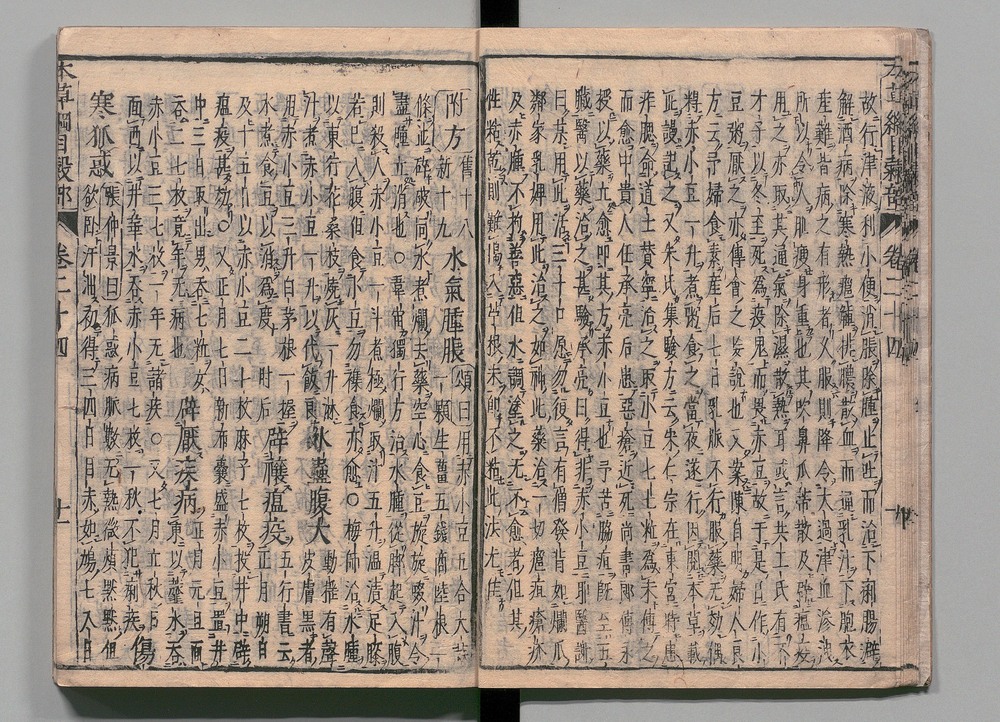 故行津液利小便消脹除腫止吐而治下痢腸澼
解酒病除寒熱癰腫排膿散血而通乳汁下胞衣
產難皆病之有形者久服則降令太過津血滲洩
所以令人肌瘦身重也其吹鼻瓜蒂散及辟瘟疫
用之亦取其通氣除濕散熱耳或言共工氏有不
才子以冬至死爲疫鬼而畏赤豆故于是日作小
豆粥厭之亦傅會之妄說也又案陳自明婦人良
方云予婦食素產後七日乳脈不行服藥无効偶
得赤小豆一升煮粥食之當夜遂行因閱本草載
此謾記之又朱氏集驗方云朱仁宗在東宮時患
痄腮命道士贊寧治之取小豆七十粒爲末傅之
而愈中貴人任承亮后患惡瘡近死尚書郎傅永
授以藥立愈叩其方赤小豆也予苦脇疽既至五
臟醫以藥治之甚驗承亮曰得非赤小豆耶醫謝
曰某用此活三十口願勿復言有僧發背如爛瓜
鄰家乳婢用此治之如神此藥治一切癰疽瘡疥
及赤腫不拘善惡但水調塗之无不愈者但其
性粘乾則難揭入苧根末即不粘此法尤佳
附方舊十八新十九水氣腫脹頌曰用赤小豆五合大蒜
一顆生薑五錢商陸根一
條並碎破同水煮爛去藥空心食豆旋旋啜汁令
盡腫立消也○韋宙獨行方治水腫從脚起入腹
則殺人赤小豆一斗煮極爛取汁五升溫漬足膝
若已入腹但食小豆勿雜食亦愈○梅師治水腫
以東行花桑枝燒灰一升淋
汁煮赤小豆一升以代飯良水蠱腹大動搖有聲
皮膚黑者
用赤小豆三升白茅根一握
水煮食豆以消爲度肘后辟禳瘟疫五行書云
正月朔旦
及十五日以赤小豆二十枚麻子七枚投井中辟
瘟疫甚効○又正月七日新布囊盛赤小豆置井
中三日取出男吞七粒女
吞二七枚竟年无病也辟厭疾病正月元旦面
東以虀水吞
赤小豆三七枚一年无諸疾○又七月立秋日
面西以井華水吞赤小豆七枚一秋不犯痢疾傷
寒狐惑張仲景曰狐惑病脈數无熱微煩默默但
欲臥汗出初得三四日目赤如鳩七八日
本草綱目穀部 卷二十四 十一